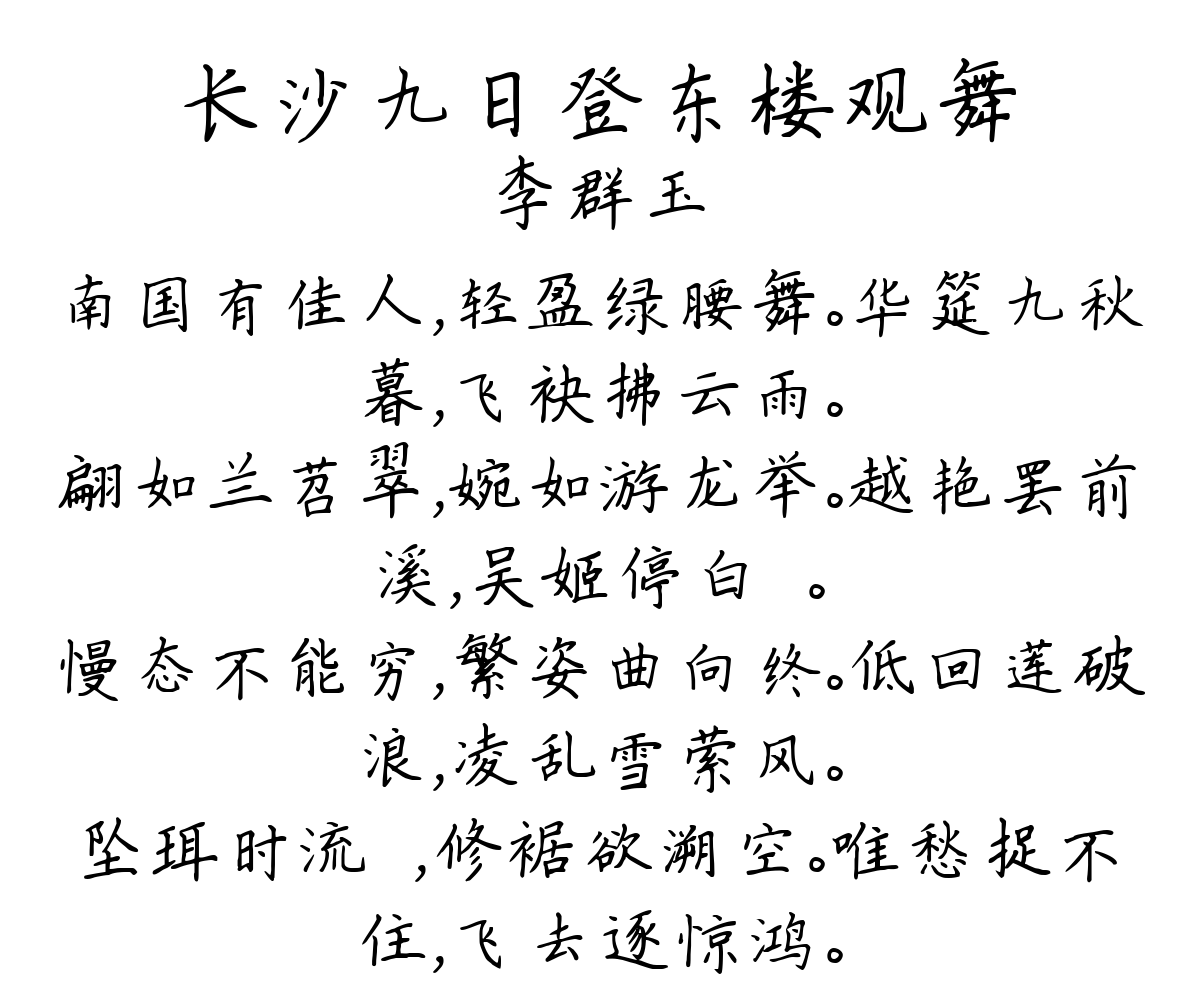 长沙九日登东楼观舞
李群玉
南国有佳人,轻盈绿腰舞。华筵九秋
暮,飞袂拂云雨。
翩如兰苕翠,婉如游龙举。越艳罢前
溪,吴姬停白 。
慢态不能穷,繁姿曲向终。低回莲破
浪,凌乱雪萦风。
坠珥时流 ,修裾欲溯空。唯愁捉不
住,飞去逐惊鸿。